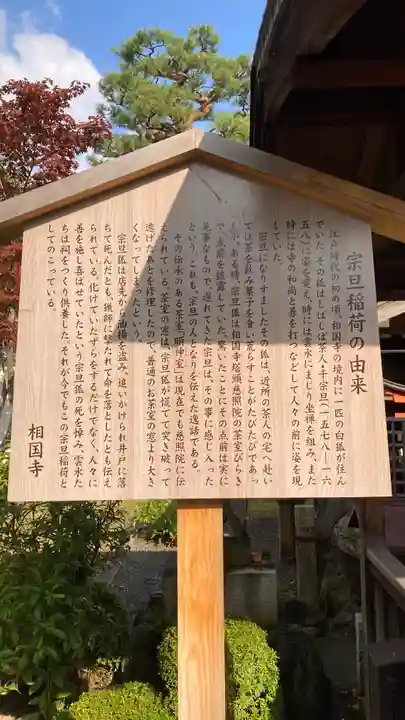 宗旦稲荷の由来
江戸時代の初め頃、相国寺の境内に一匹の白狐が住ん
でいた。その狐はしばしば茶人千宗旦（一五七八―一六
五八）に姿を変え、時には雲水にまじり坐禅を組み、また
時には寺の和尚と碁を打つなどして人々の前に姿を現
していた。
宗旦になりすましたその狐は、近所の茶人の宅へ赴い
ては茶を飲み菓子を食い荒らすことがたびたびであっ
たが、ある時、宗旦狐は相国寺塔頭慈照院の茶室びらき
で、点前を披露していた。驚いたことにその点前は実に
見事なもので、遅れてきた宗旦は、その事に感じ入った
という。これも、宗旦の人となりを伝えた逸話である。
その伝承のある茶室「頤神室」は現在でも慈照院に伝
えられている。茶室の窓は、宗旦狐が慌てて突き破って
逃げたあとを修理したので、普通のお茶室の窓より大き
くなってしまったという。
宗旦狐は店先から油揚を盗み、追いかけられ井戸に落
ちて死んだとも、猟師に撃たれて命を落としたとも伝え
られている。化けていたずらをするだけでなく、人々に
善を施し喜ばせていたという宗旦狐の死を悼み、雲水た
ちは祠をつくり供養した。それが今でもこの宗旦稲荷と
してのこっている。
相国寺